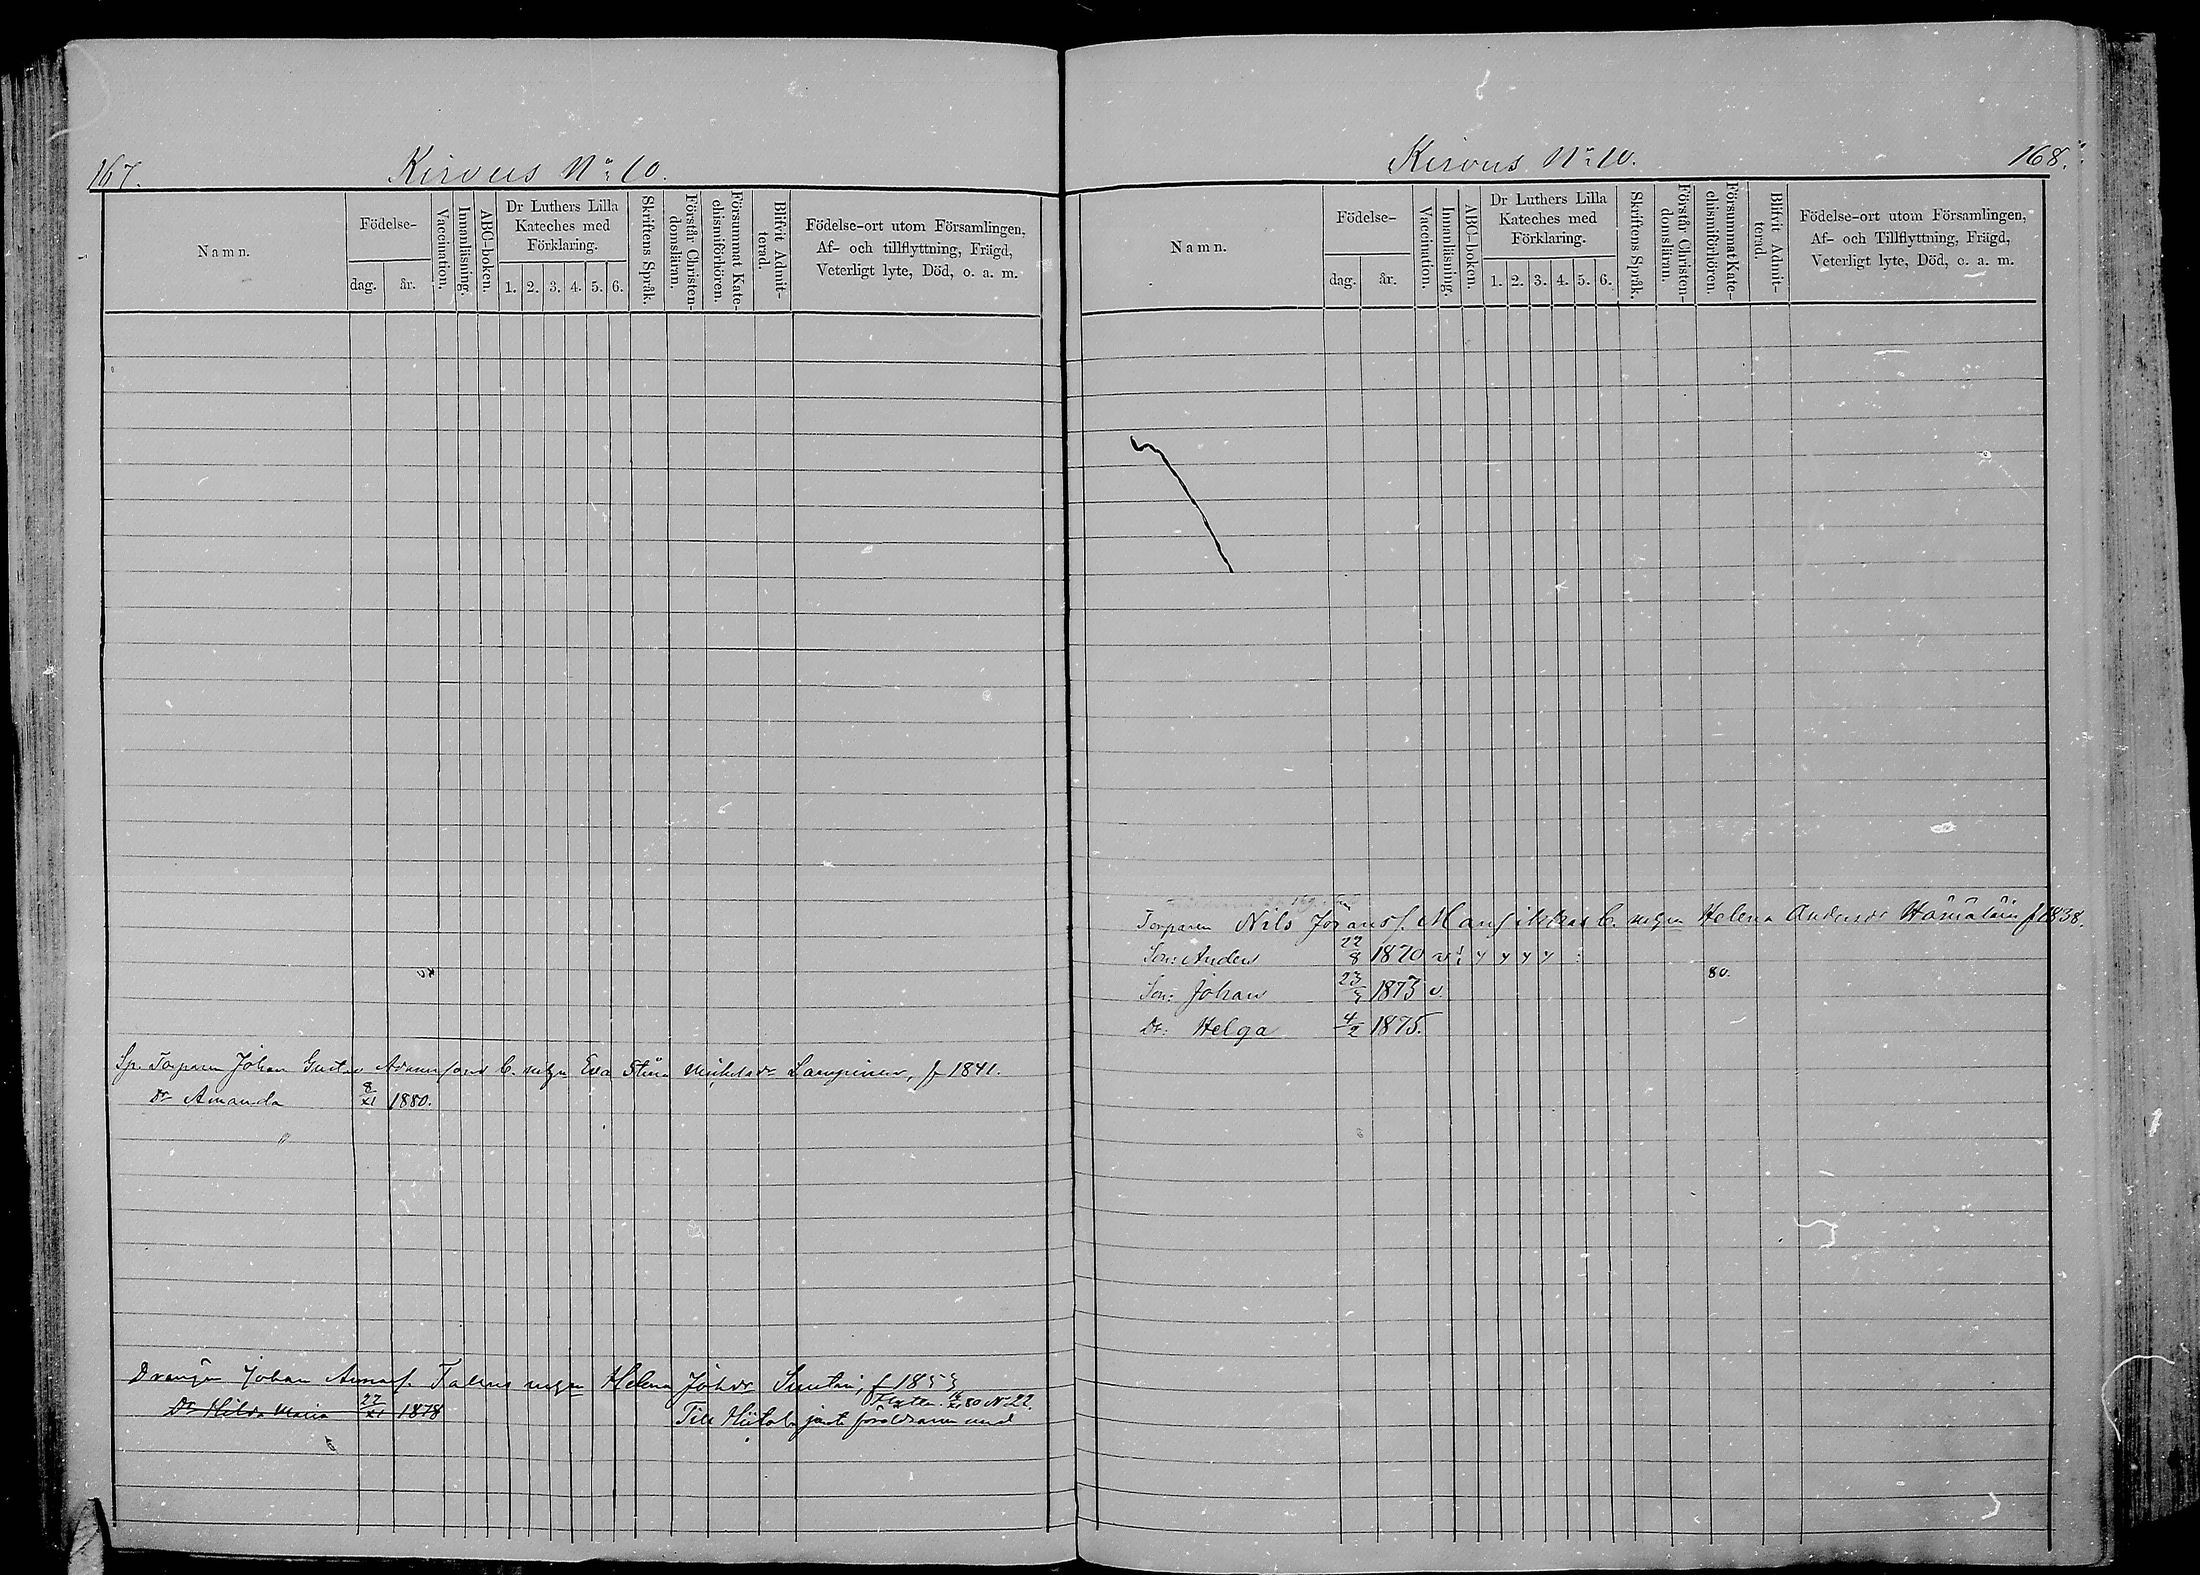 167.
Kirvus N:o 10.
Namn.
Födelse-
dag.
år.
Vaccination.
Innanläsning.
ABC-boken.
Dr Luthers Lilla
Kateches med
Förklaring.
1. 2. 3. 4. 5. 6.
Skriftens Språk.
Förstår Christen-
domsläran.
Försummat Kate-
chismiförhören.
Blifvit Admit-
terad.
Födelse-ort utom Församlingen,
Af- och tillflyttning, Frägd,
Veterligt lyte, Död, o. a. m.
Sp. Torparen Johan Gustav Adamsons C. Eva Stina Michelsdr f 1841.
Dr Amanda 8/XI 1880.
Drengen Johan Helena Johdr f 1853
Dr Hilda Maria 22/XI 1878 Till Hiitola föräldrarne med
80 N 22.
Kirvus N:o 10.
168.
Namn.
Födelse-
dag.
år.
Vaccination.
Innanläsning.
ABC-boken.
Dr Luthers Lilla
Kateches med
Förklaring.
1. 2. 3. 4. 5. 6.
Skriftens Språk.
Förstår Christen-
domslärann.
Försummat Kate-
chismiförhören.
Blifvit Admit-
terad.
Födelse-ort utom Församlingen,
Af- och Tillflyttning, Frägd,
Veterligt lyte, Död, o. a. m.
Torparen Nils Joransf. Mansikkas C. Helena Andersdr Hämäläin f 1838.
Son: Anders 22/8 1870 v
80.
Son: Johan 23/5 1873 v.
Dr: Helga 4/2 1875.